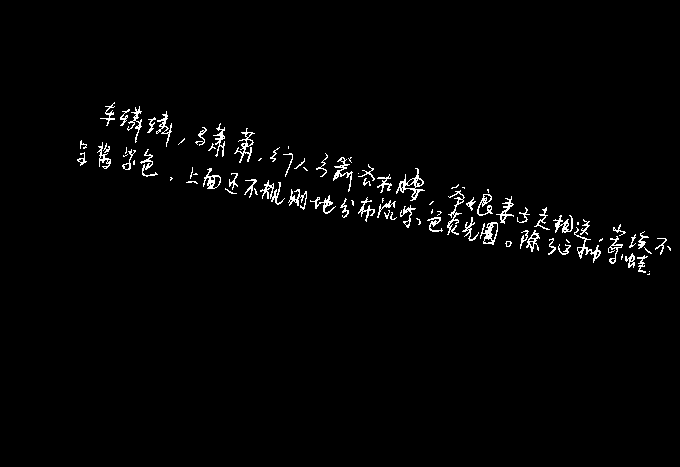 车辚辚，马萧萧，行人弓箭各在腰，爷娘妻子走相送，尘埃不
呈酱紫色，上面还不规则地分布淡紫色荧光圈。除了这种箭蛙，